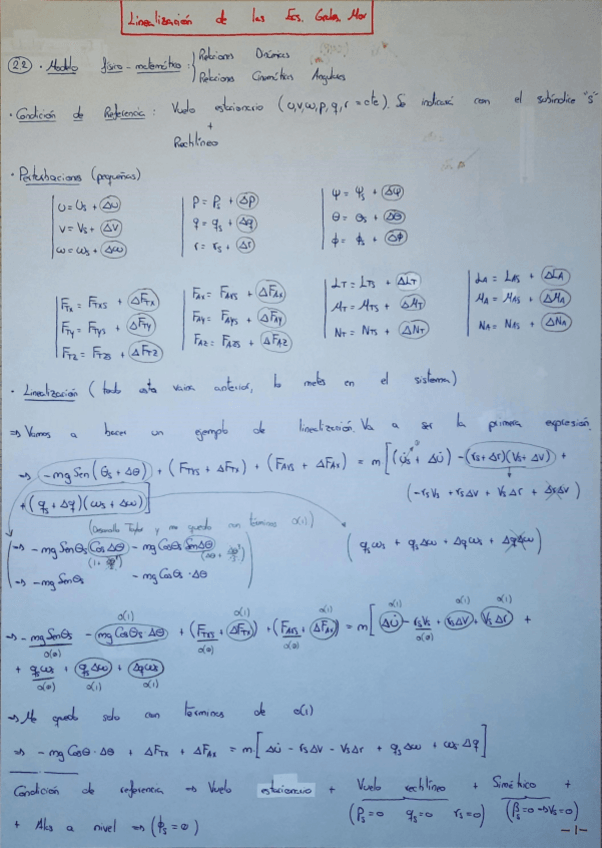 Linealización de las Ecs. Grales. Mov
2.2 · Modelo físico-matemático: { Relaciones Dinámicas
Relaciones Cinemáticas Angulares
· Condición de Referencia: Vuelo estacionario (u,v,w,p,q,r = cte). Se indicará con el subíndice "s"
+
Rectilíneo
· Perturbaciones (pequeñas)
u = us + Δu   p = ps + Δp   ψ = ψs + Δψ
v = vs + Δv   q = qs + Δq   θ = θs + Δθ
w = ws + Δw   r = rs + Δr   ϕ = ϕs + Δϕ
FTx = FTxs + ΔFTx   FAx = FAxs + ΔFAx   LT = LTs + ΔLT   LA = LAs + ΔLA
FTy = FTys + ΔFTy   FAy = FAys + ΔFAy   MT = MTs + ΔMT   MA = MAs + ΔMA
FTz = FTzs + ΔFTz   FAz = FAzs + ΔFAz   NT = NTs + ΔNT   NA = NAs + ΔNA
· Linealización (todo esta vaina anterior, lo metes en el sistema)
⇒ Vamos a hacer un ejemplo de linealización. Va a ser la primera expresión.
⇒ -mg Sen(θs + Δθ) + (FTxs + ΔFTx) + (FAxs + ΔFAx) = m[(u̇s + Δu̇) - (rs + Δr)(vs + Δv) +
(-rsvs + rsΔv + vsΔr + ΔrΔv)
+ (qs + Δq)(ws + Δw)]
(Desarrollo Taylor y me quedo con términos o(1))
(⇒ -mg Senθs CosΔθ - mg Cosθs SenΔθ   (qsws + qsΔw + Δqws + ΔqΔw)
⇒ -mg Senθs - mg Cosθs · Δθ)
⇒ -mg Senθs - mg Cosθs · Δθ + (FTxs + ΔFTx) + (FAxs + ΔFAx) = m[Δu̇ - rsvs - rsΔv + vsΔr +
o(0) o(1) o(0) o(1) o(0) o(1) o(1) o(0) o(1) o(1)
+ qsws + qsΔw + Δqws
o(0) o(1) o(1)
⇒ Me quedo solo con términos de o(1)
⇒ -mg Cosθ · Δθ + ΔFTx + ΔFAx = m·[Δu̇ - rsΔv - vsΔr + qsΔw + ws·Δq]
Condición de referencia → Vuelo estacionario + Vuelo rectilíneo + Simétrico +
(ps=0 qs=0 rs=0) (βs=0 → vs=0)
+ Alas a nivel ⇒ (ϕs = 0)
-1-